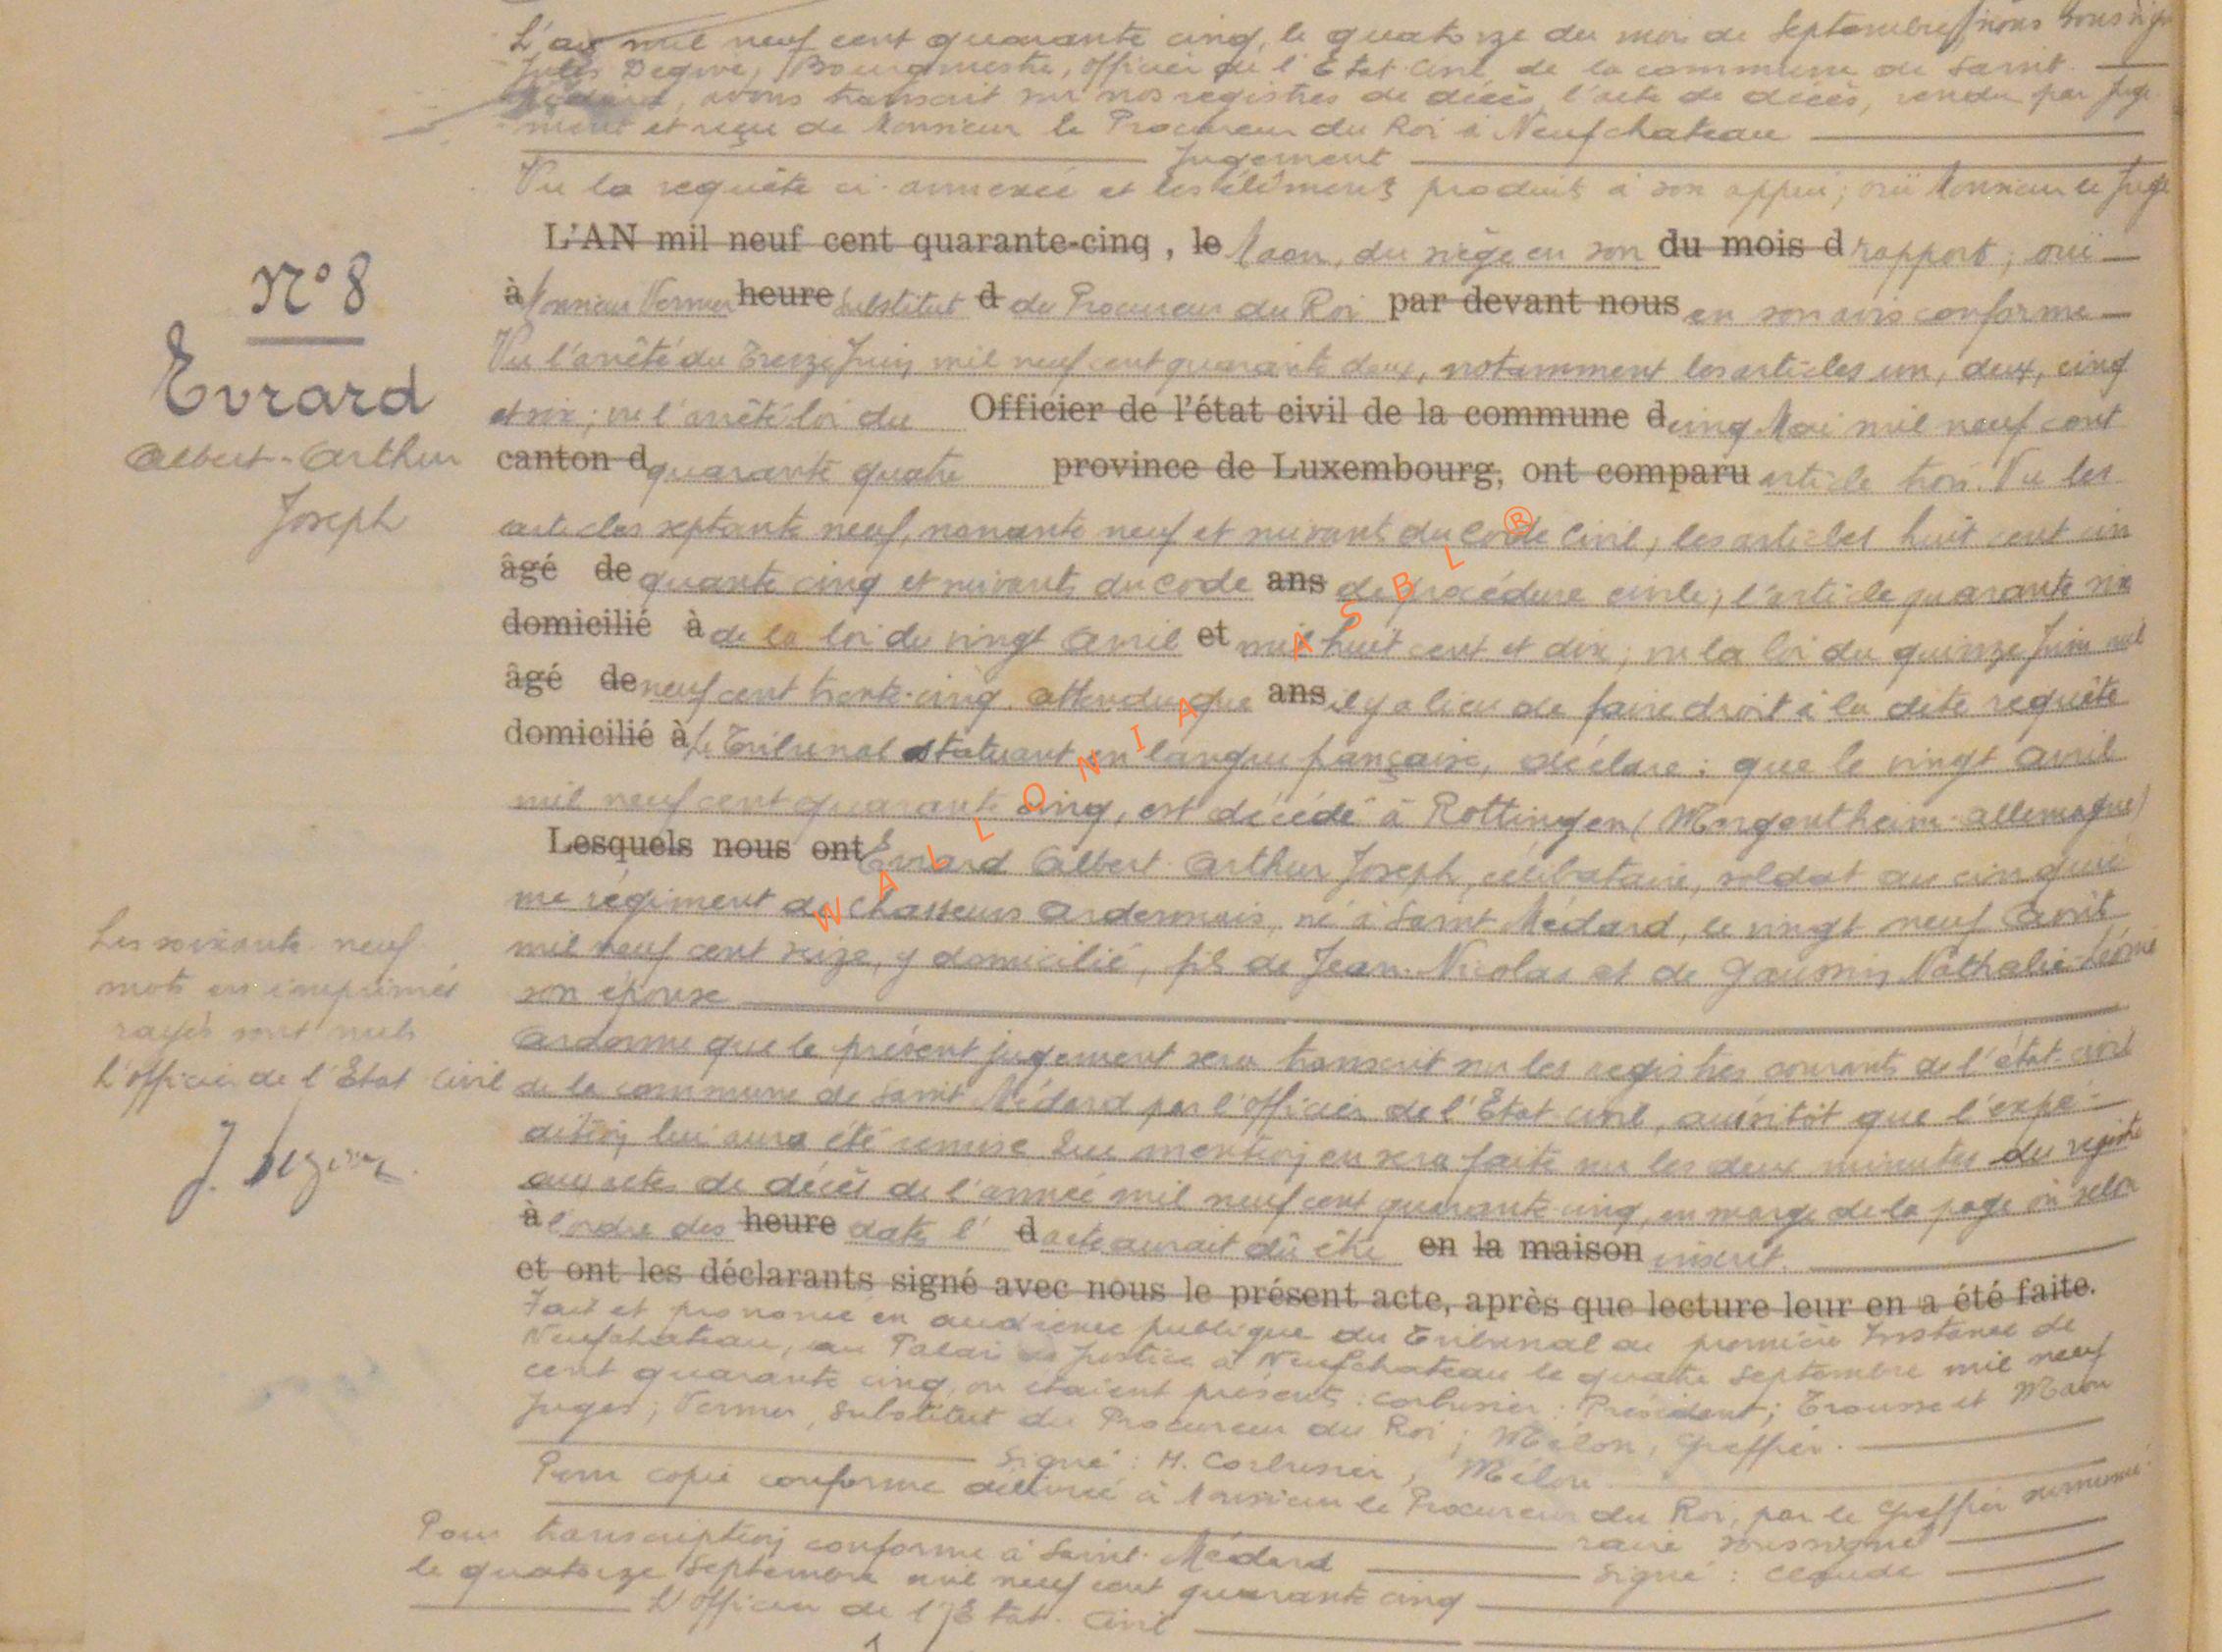 L'an mil neuf cent quarante cinq, le quatorze du mois de Septembre, nous soussigné
Jules Degive, Bourgmestre, officier de l'Etat-Civil de la commune de Saint-
Médard, avons transcrit sur nos registres de décès, l'acte de décès, rendu par juge-
ment et reçu de Monsieur le Procureur du Roi à Neufchateau
Jugement
Vu la requête ci-annexée et les éléments produits à son appui; ouï Monsieur le Juge
L'AN mil neuf cent quarante-cinq, le Maon, du siège en son du mois d rapport; ouï
à Monsieur Vermer heure Substitut d du Procureur du Roi par devant nous en son avis conforme
Vu l'arrêté du Treize Juin mil neuf cent quarante deux, notamment les articles un, deux, cinq
et six; vu l'arrêté-loi du Officier de l'état civil de la commune d cinq Mai mil neuf cent
canton d quarante quatre province de Luxembourg, ont comparu article trois. Vu les
articles septante neuf, nonante neuf et suivants du Code Civil, les articles huit cent cin
âgé de quante cinq et suivants du Code ans de procédure civile; l'article quarante six
domicilié à de la loi du vingt Avril et mil huit cent et dix; vu la loi du quinze Juin mil
âgé de neuf cent trente-cinq. Attendu que ans il y a lieu de faire droit à la dite requête
domicilié à Le Tribunal statuant en langue française, déclare: que le vingt Avril
mil neuf cent quarante cinq, est décédé à Rottingen (Mergentheim-Allemagne)
Lesquels nous ont Evrard Albert Arthur Joseph, célibataire, soldat au cinquiè
me régiment de Chasseurs Ardennais, né à Saint Médard, le vingt neuf Avril
mil neuf cent seize, y domicilié, fils de Jean-Nicolas et de Nathalie-Léonie
son épouse
Ordonne que le présent jugement sera transcrit sur les registres courants de l'état-civil
de la commune de Saint Médard par l'officier de l'Etat-civil, aussitôt que l'expé-
dition lui aura été remise que mention en sera faite sur les deux minutes du registre
aux actes de décès de l'année mil neuf cent quarante cinq, en marge de la page où selon
à l'ordre des heure dates l' d acte aurait dû être en la maison inscrit.
et ont les déclarants signé avec nous le présent acte, après que lecture leur en a été faite.
Fait et prononcé en audience publique du Tribunal de première Instance de
Neufchateau, au Palais de Justice à Neufchateau le quatre Septembre mil neuf
cent quarante cinq, où étaient présents: Corbusier: Président; Trousse et Maon
Juges; Vermer, Substitut du Procureur du Roi; Mélon, Greffier.
Signé: H. Corbusier, Mélon
Pour copie conforme délivrée à Monsieur le Procureur du Roi, par le Greffier surnumé-
raire soussigné
Signé: Claude
Pour transcription conforme à Saint-Médard
le quatorze Septembre mil neuf cent quarante cinq
L'Officier de l'Etat-Civil
N° 8
Evrard
Albert-Arthur
Joseph
Les soixante neuf
mots en imprimés
rayés sont nuls
L'officier de l'Etat Civil
J. Degive
WALLONIA ASBL ®